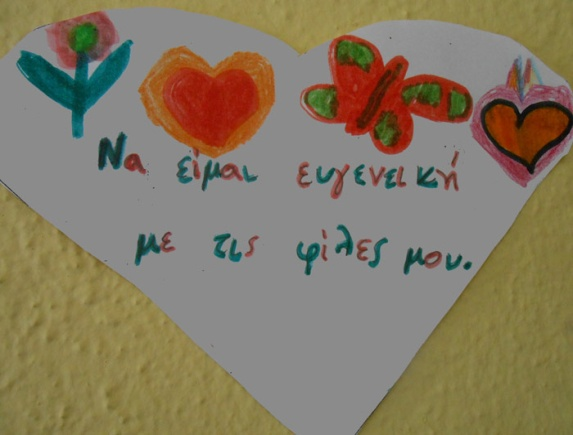 Να είμαι ευγενεική
με τις φίλες μου.